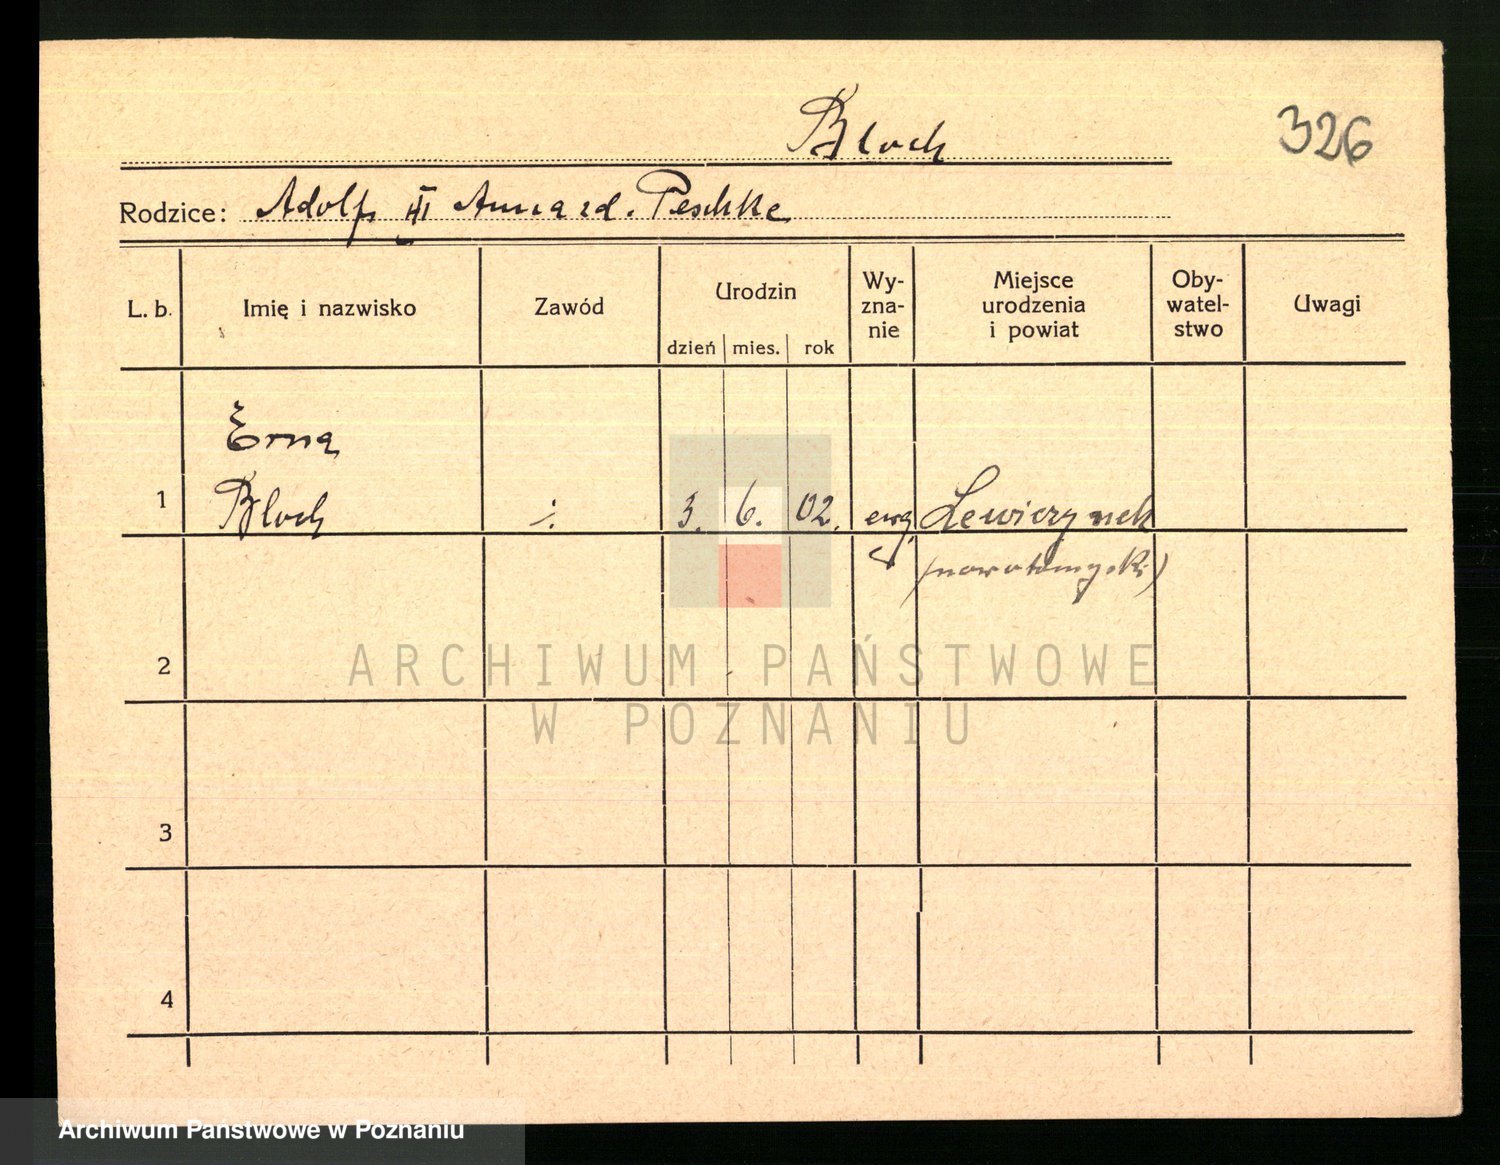 Bloch
326
Rodzice: Adolf III Anna zd. Peschke
L. b. Imię i nazwisko Zawód Urodzin dzień mies. rok Wy-zna-nie Miejsce urodzenia i powiat Oby-watel-stwo Uwagi
Erna
1 Bloch ÷ 3. 6. 02. ewg. Lewiczynek
(nowotomyski)
2
3
4
ARCHIWUM PAŃSTWOWE
W POZNANIU
Archiwum Państwowe w Poznaniu